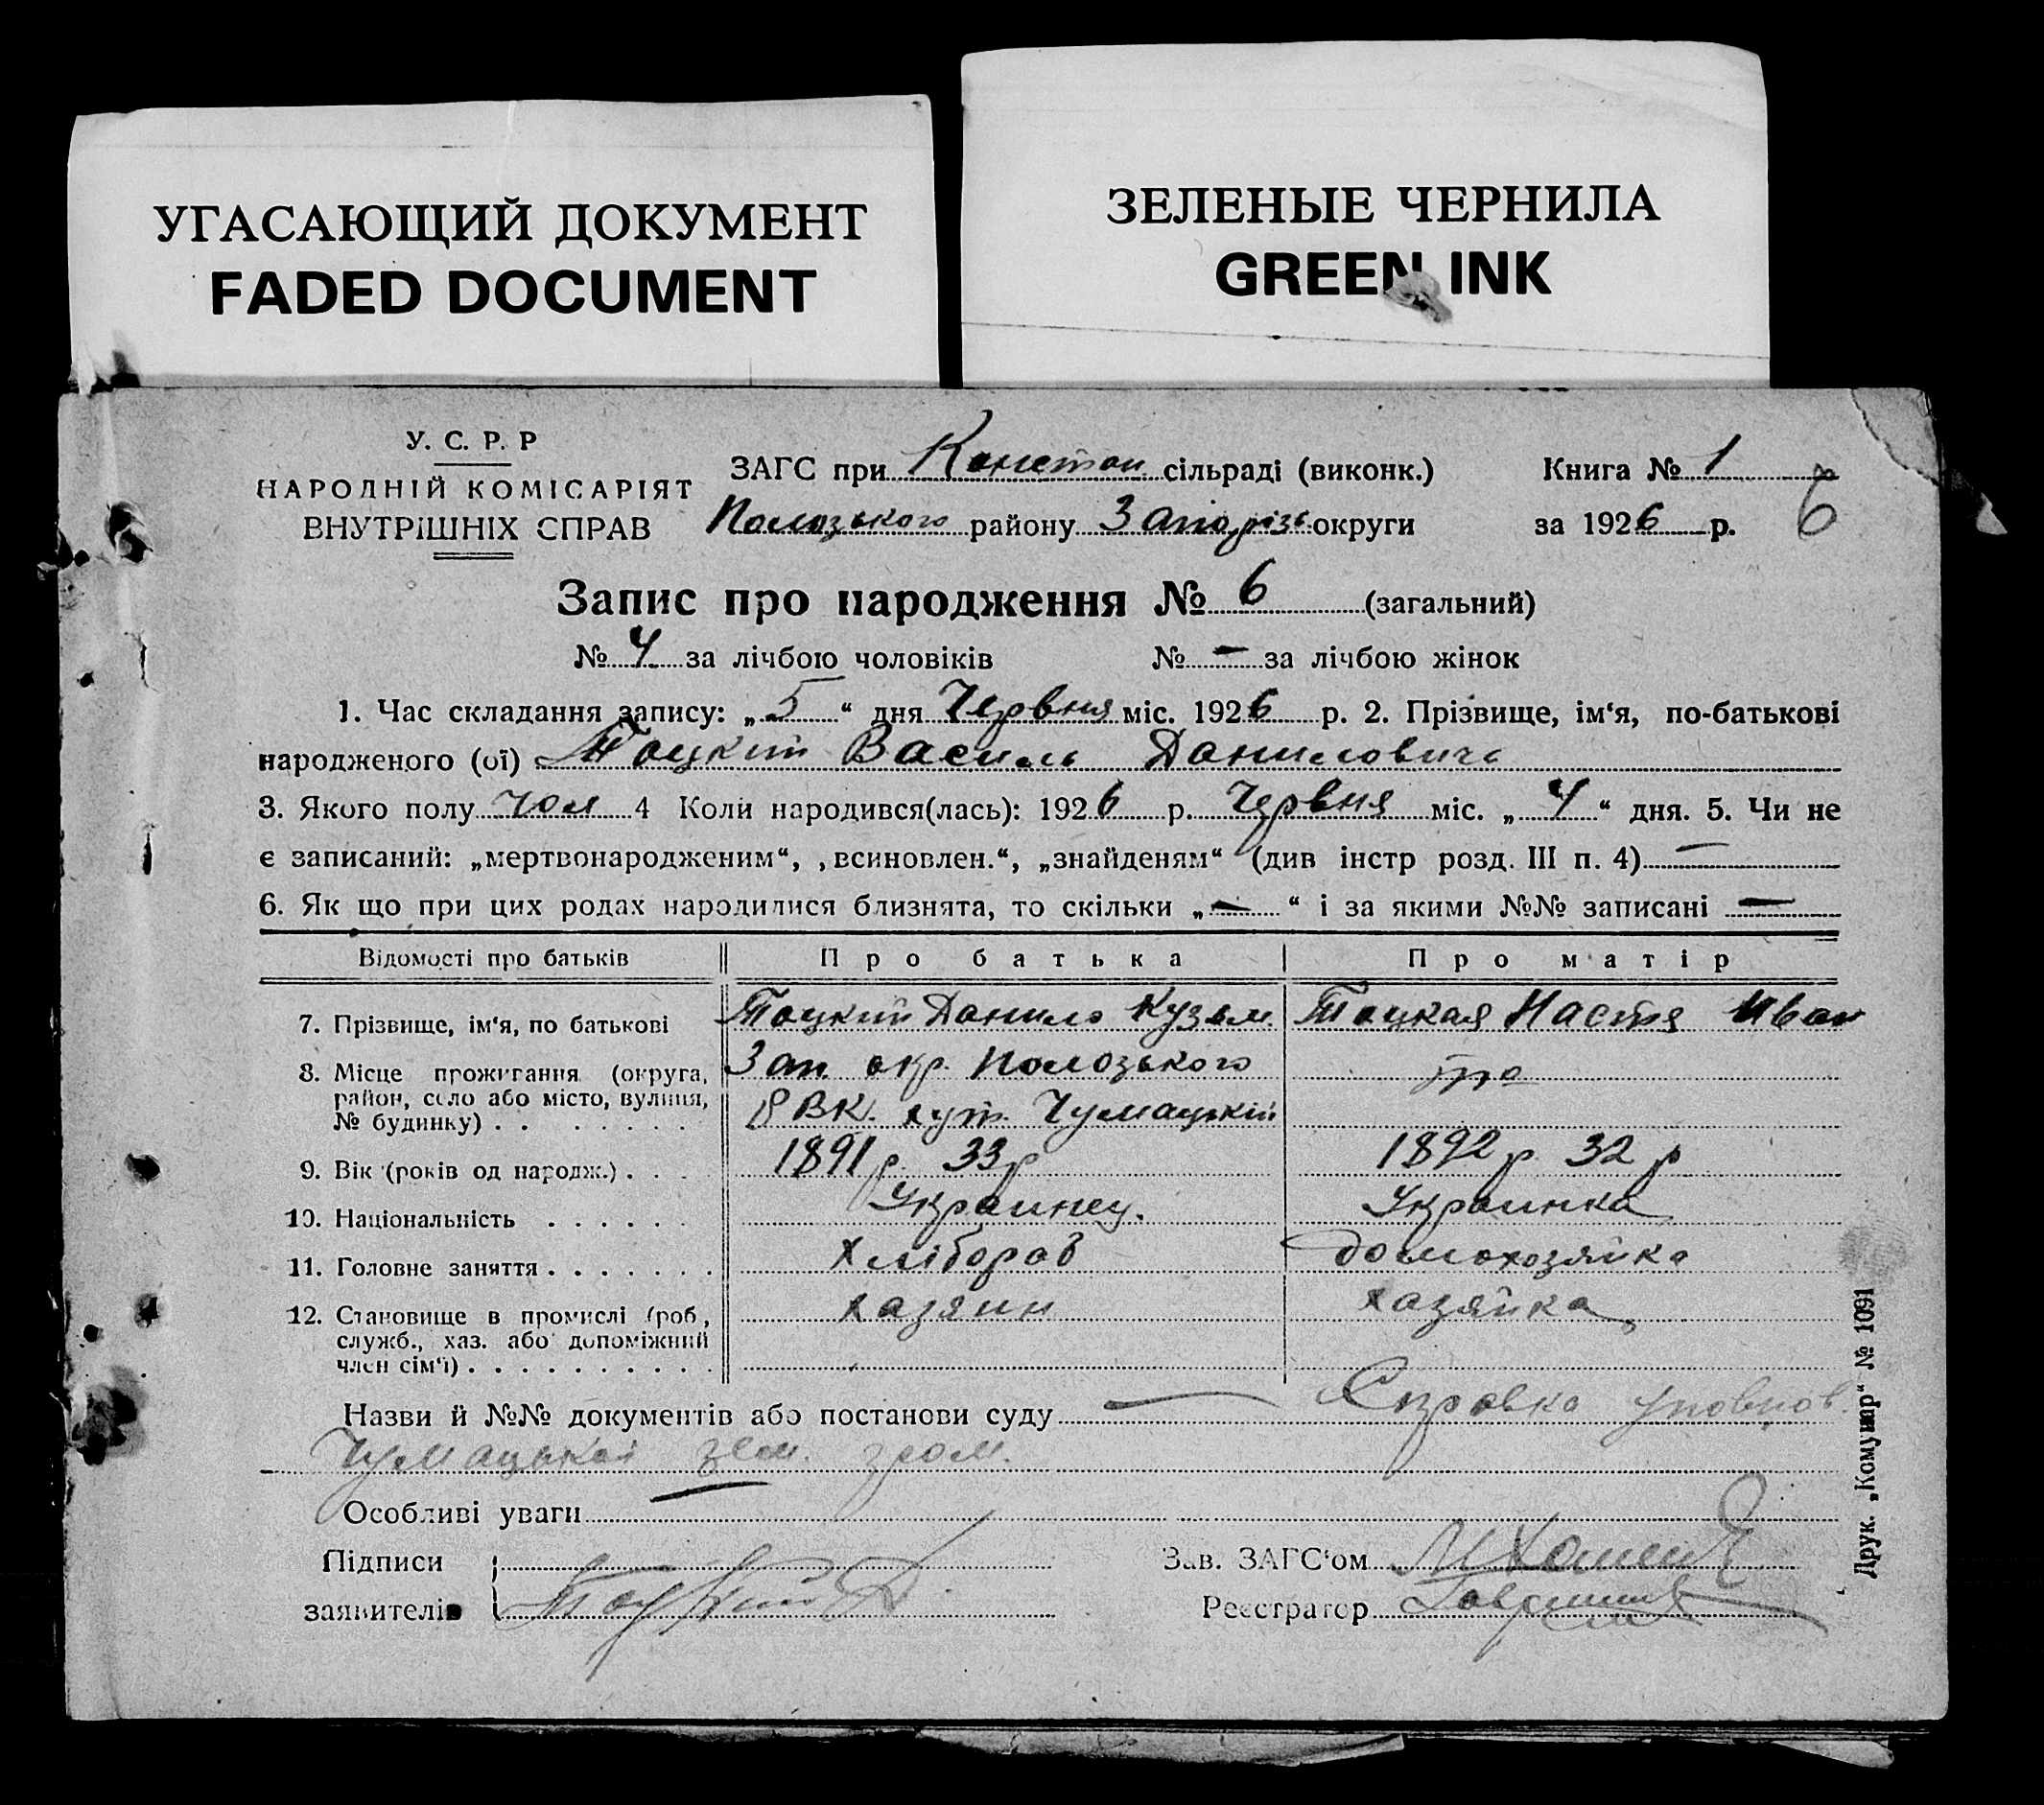 УГАСАЮЩИЙ ДОКУМЕНТ
FADED DOCUMENT
ЗЕЛЕНЫЕ ЧЕРНИЛА
GREEN INK
У. С. Р. Р
НАРОДНІЙ КОМІСАРІЯТ
ВНУТРІШНІХ СПРАВ
ЗАГС при Констан сільраді (виконк.)
Пологзького району Запорізь округи
Книга № 1
за 1926 р.
6
Запис про народження № 6 (загальний)
№ 4 за лічбою чоловіків № - за лічбою жінок
1. Час складання запису: „5“ дня Червня міс. 1926 р. 2. Прізвище, ім‘я, по-батькові
народженого (ої) Тоцкий Василь Данилович
3. Якого полу чол 4 Коли народився(лась): 1926 р. Червня міс. „4“ дня. 5. Чи не
є записаний: „мертвонародженим“, „всиновлен.“, „знайденям“ (див інстр розд. III п. 4) —
6. Як що при цих родах народилися близнята, то скільки „—“ і за якими №№ записані —
Відомості про батьків Про батька Про матір
7. Прізвище, ім‘я, по батькові Тоцкий Данило Кузьм. Тоцкая Настя Иван
8. Місце проживання (округа, район, село або місто, вулиця, № будинку) . . . . . . . .
Зап. окр. Полозького
РВК. хут. Чумацький
9. Вік (років од народж.) . . . 1891 р. 33 р 1892 р 32 р
10. Національність . . . . . . Украинец. Украинка
11. Головне заняття . . . . . . . Хлібороб домохозяйка
12. Становище в промислі (роб, служб., хаз. або допоміжний член сім‘ї) . . . . . . . . . . хазяин хазяйка
Назви й №№ документів або постанови суду — Справка уповнов.
Чумацької зем. гром.
Особливі уваги —
Підписи
заявителів Тоцкий Д
Зав. ЗАГС‘ом
Реєстратор
Друк. „Комунар“ № 1091